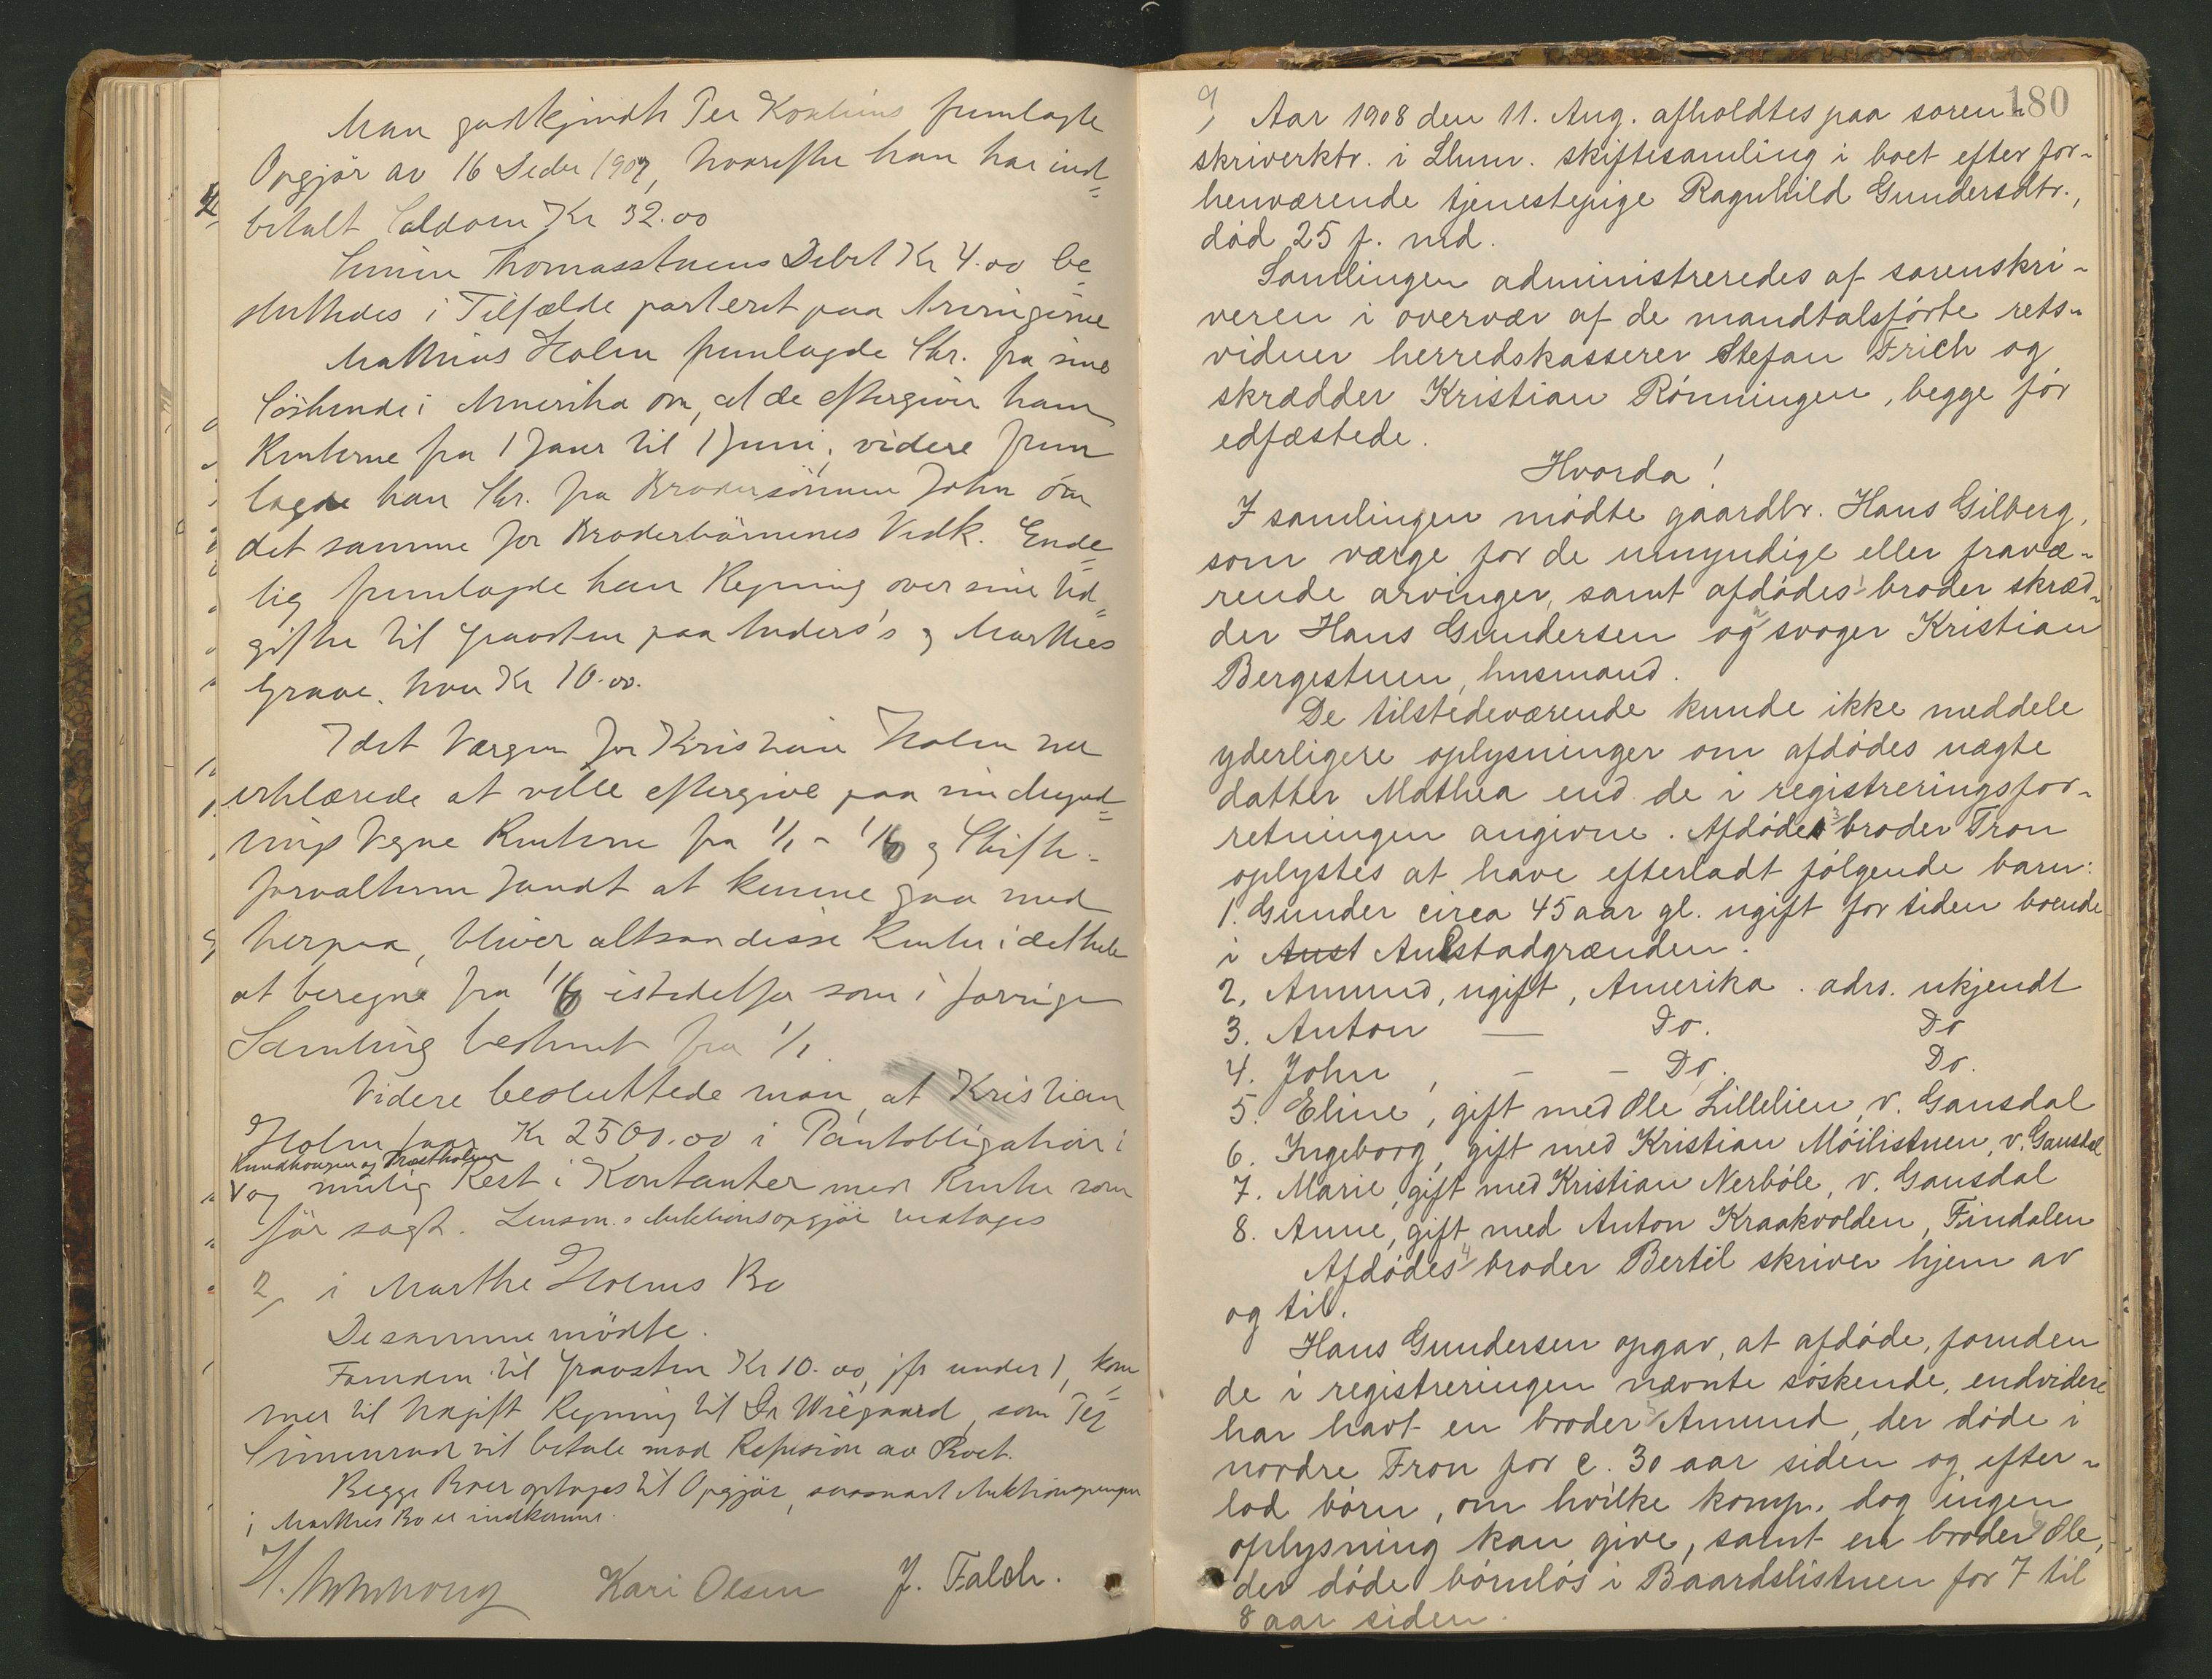 Man godkjendte Per Kostuens fremlagte
Opgjör av 16 Decbr 1907, hvorefter han har ind-
betalt Saldoen Kr 32.00
Thomasstuens Debet Kr 4.00 be-
sluttedes i Tilfælde parteret paa Arvingerne
Mathias Holm fremlagde Skr. fra sine
Söskende i Amerika om, at de eftergiver ham
Renterne fra 1 Janr til 1 Juni, videre frem
lagde han Skr. fra Brodersönnen John om
det samme for Broderbörnenes Vedk. Ende-
lig fremlagde han Regning over sine Ud-
gifter til Gravsten paa Anders's og Marthes
Grave. hver Kr 10.00.
Idet Værgen for Kristian Holm nu
erklærede at ville eftergive paa sin Myndt-
lings Vegne Renterne fra 1/1 - 1/6 og Skifte-
forvalteren fandt at kunne gaa med
herpaa, bliver altsaa disse Renter i det hele
at beregne fra 1/6 istedetfor som i forrige
Samling bestemt fra 1/1.
Videre besluttede man, at Kristian
Holm faar Kr 2500.00 i Pantobligation i
Kundhougen og Træetholmen
og mulig Rest i Kontanter med Renter som
för sagt. Lensm.s Auktionsopgjör vedtoges
2, i Marthe Holms Bo
De samme mödte.
Foruden til Gravsten Kr 10.00, jfr under 1, kom-
mer til Udgift Regning til Dr Wiegaard, som Per
Simenrud vil betale mod Refusion av Boet.
Begge Boer optoges til Opgjör, saasnart Auktionspengene
i Marthes Bo er indkomne.
Kari Olsen J. Falch.
180
9, Aar 1908 den 11. Aug. afholdtes paa soren-
skriverktr. i Lhmr. skiftesamling i boet efter for-
henværende tjenestepige Ragnhild Gundersdtr.,
död 25 f. md.
Samlingen administreredes af sorenskri-
veren i overvær af de mandtalsförte rets-
vidner herredskasserer Stefan Frich og
skrædder Kristian Rönningen, begge för
edfæstede.
Hvorda!
I samlingen mödte gaardbr. Hans Gilberg,
som værge for de umyndige eller fravæ-
rende arvinger, samt afdödes 1/ broder skræd-
der Hans Gundersen og 2/ svoger Kristian
Bergestuen, husmand.
De tilstedeværende kunde ikke meddele
yderligere oplysninger om afdödes uægte
datter Mathea end de i registreringsfor-
retningen angivne. Afdödes 3/ broder Tron
oplystes at have efterladt fölgende barn:
1. Gunder circa 45 aar gl. ugift for tiden boende
i Aust Aulstadgrænden.
2, Amund, ugift, Amerika. adrs. ukjendt
3. Anton — Do. Do
4. John, - - Do. Do.
5. Eline, gift med Ole Lillelien, v. Gausdal
6. Ingeborg, gift med Kristian Möilistuen, v. Gausdal
7. Marie, gift med Kristian Nerböle, v. Gausdal
8. Anne, gift med Anton Kraakvolden, Findalen
Afdödes 4/ broder Bertil skriver hjem av
og til.
Hans Gundersen opgav, at afdöde, foruden
de i registreringen nævnte söskende, endvidere
har havt en broder 5/ Amund, der döde i
nordre Fron for c. 30 aar siden og efter-
lod börn, om hvilke komp. dog ingen
oplysning kan give, samt en broder 6/ Ole,
der döde börnlös i Baardslistuen for 7 til
8 aar siden.